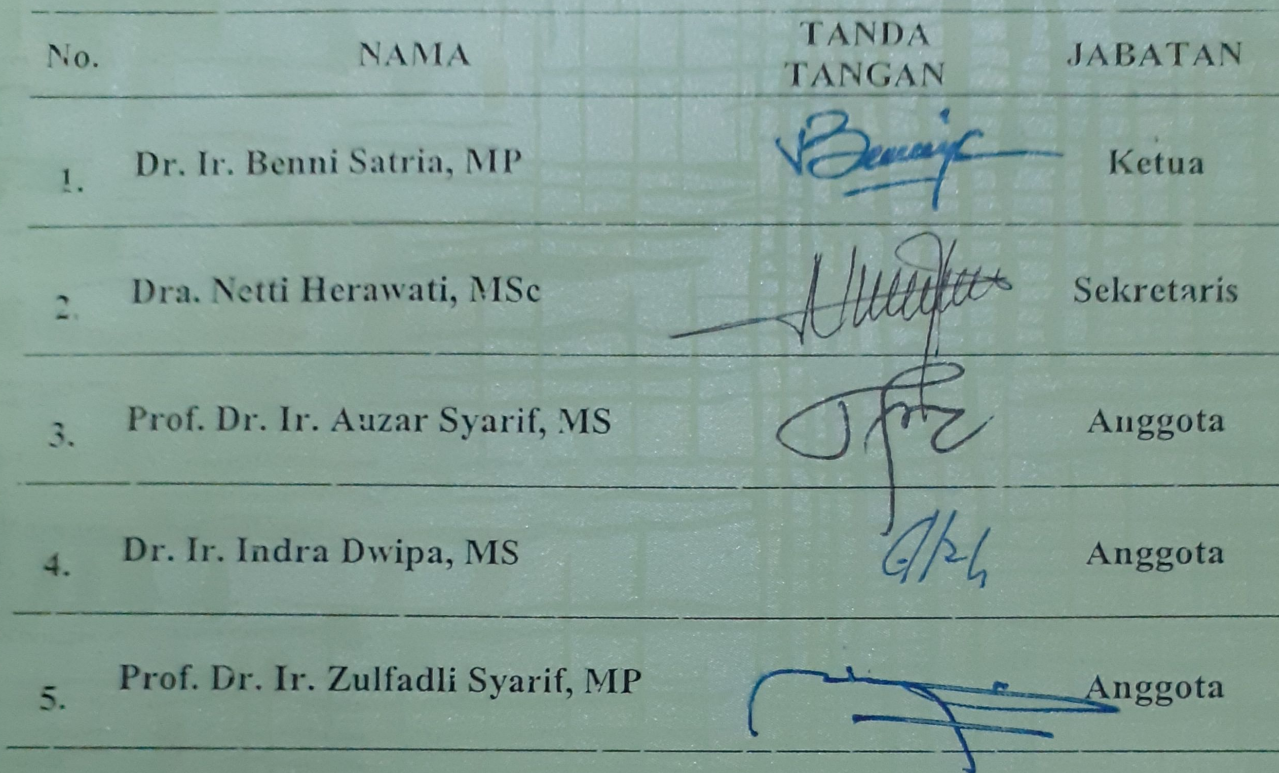 No. NAMA TANDA TANGAN JABATAN
1. Dr. Ir. Benni Satria, MP Ketua
2. Dra. Netti Herawati, MSc Sekretaris
3. Prof. Dr. Ir. Auzar Syarif, MS Anggota
4. Dr. Ir. Indra Dwipa, MS Anggota
5. Prof. Dr. Ir. Zulfadli Syarif, MP Anggota